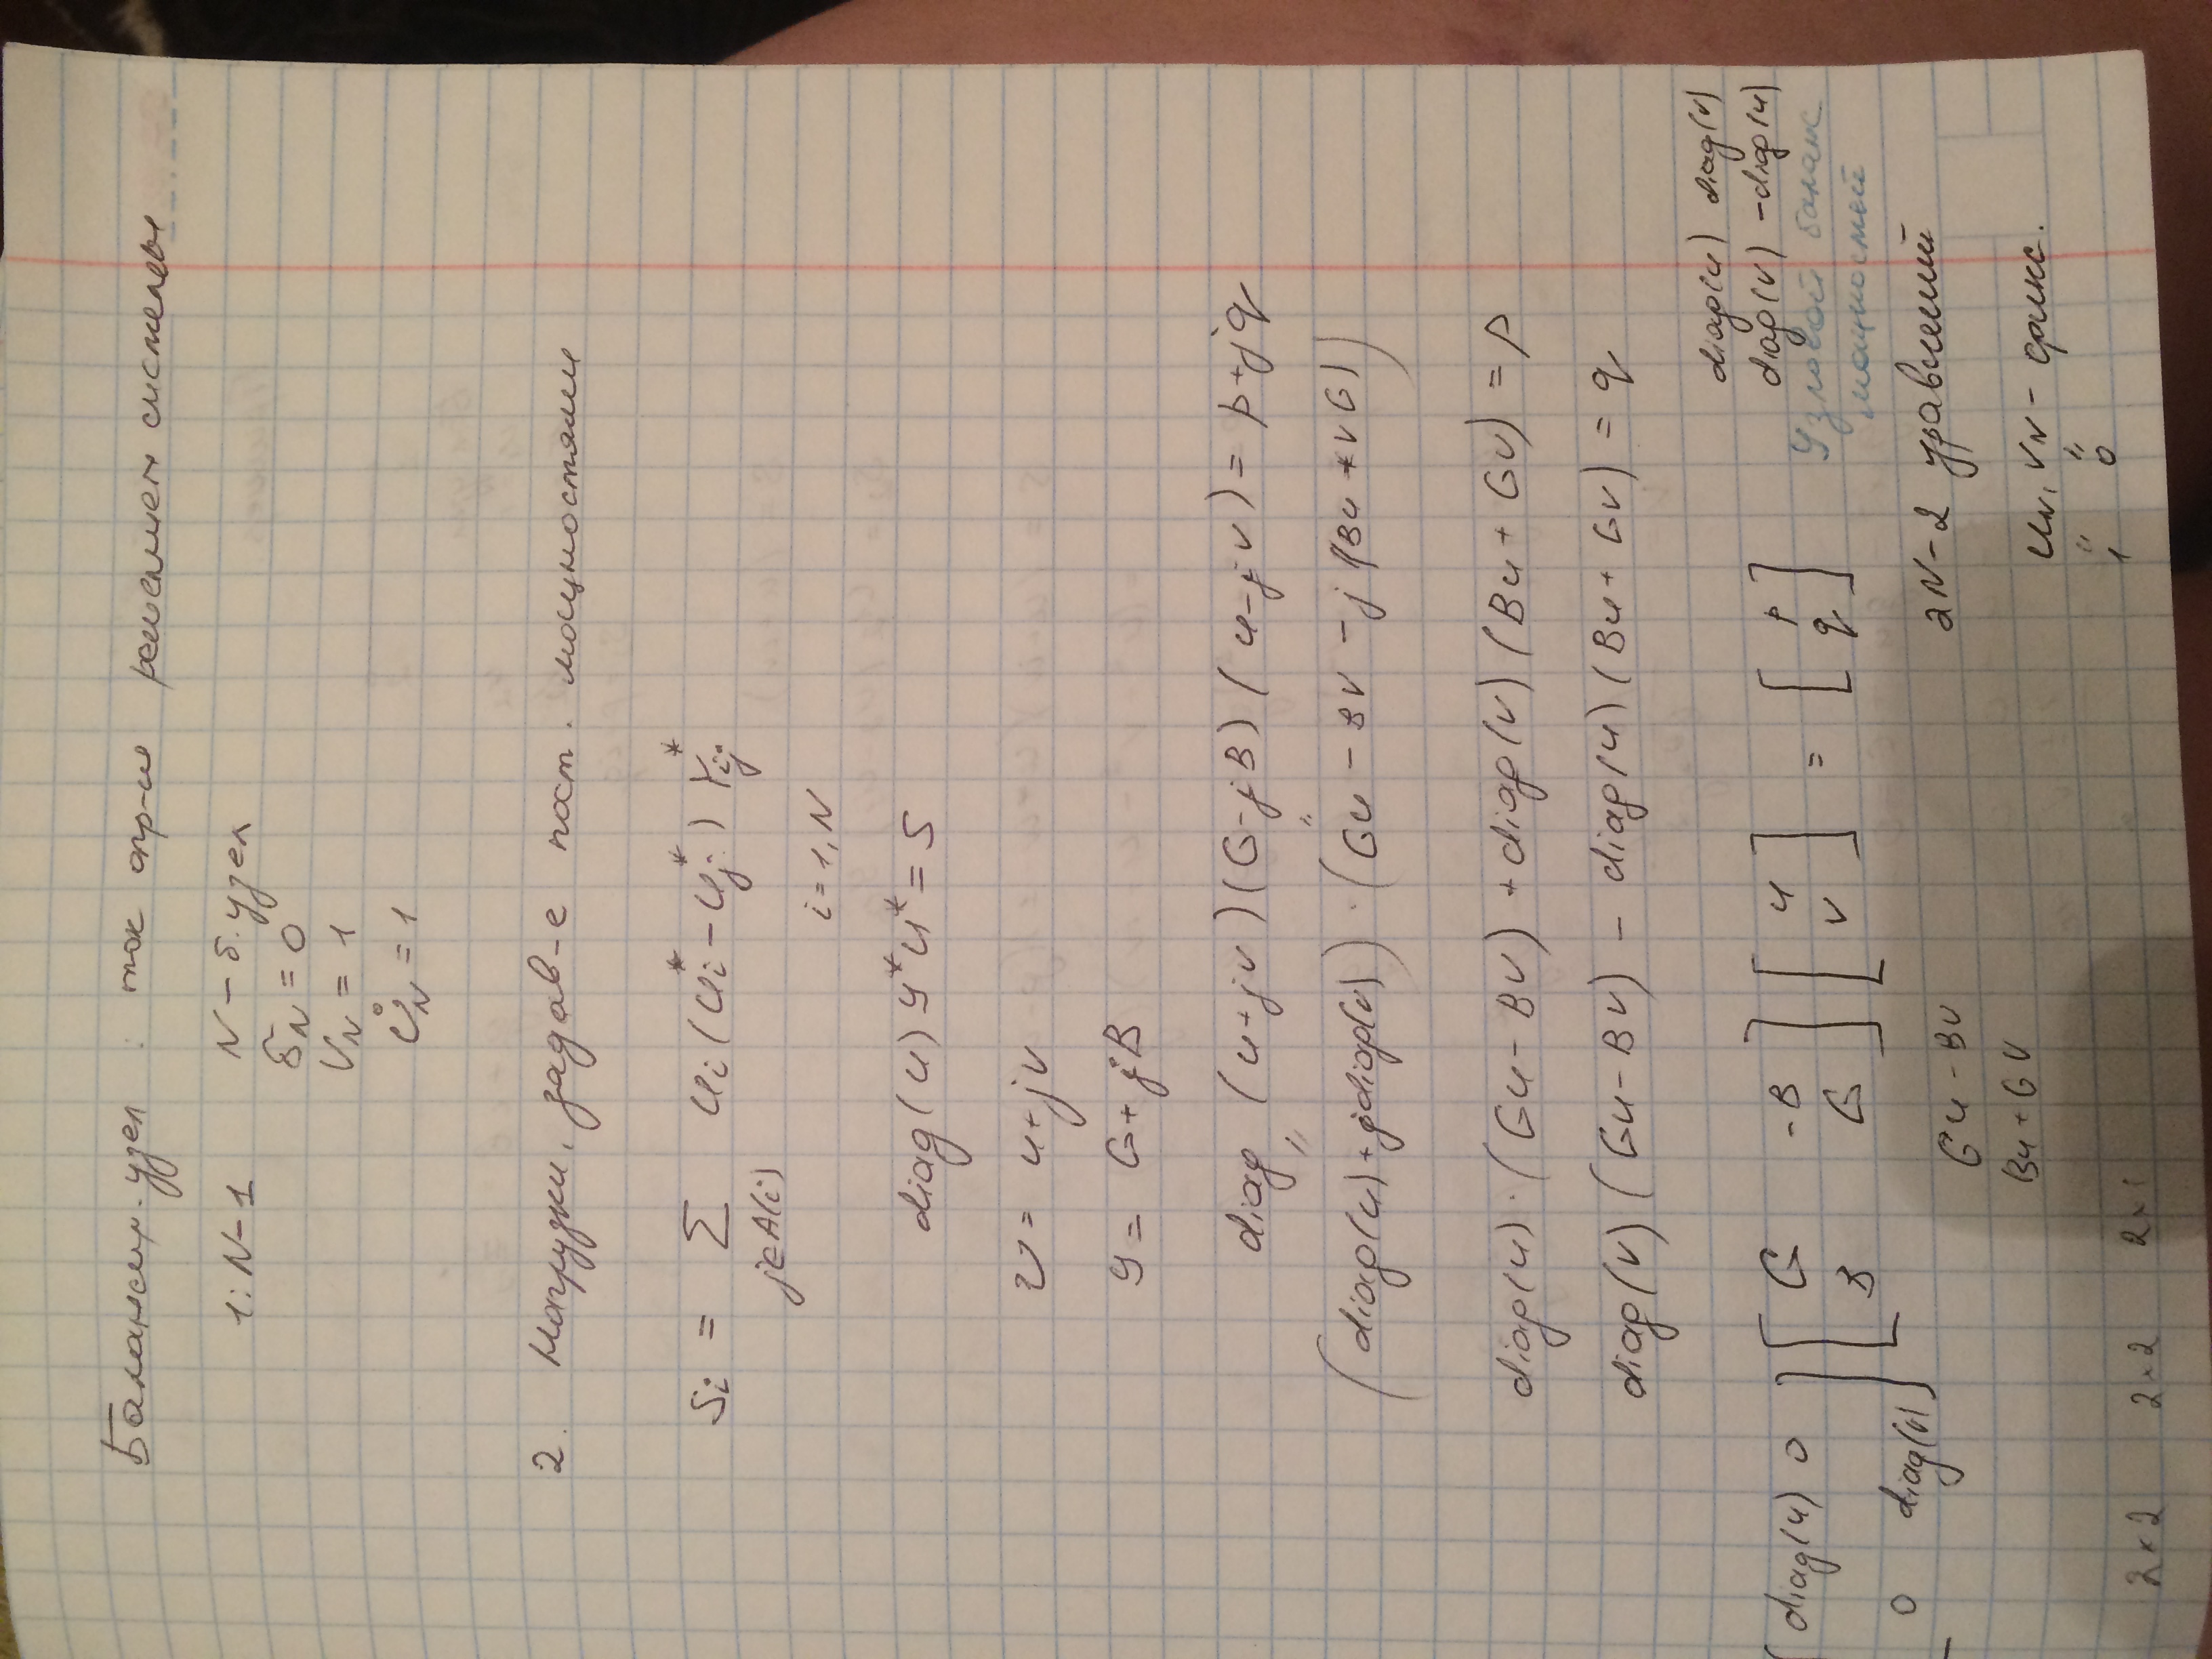 Балансир. узел : ток опр-ся решением системы
1:N-1 N – б. узел
δN = 0
VN = 1
U̇N = 1
2. Нагрузки, задав-е пост. мощностями
Si = Σ ui (ui* – uj*) Yij*
j∈A(i) i = 1,N
diag(u) y* u* = S
v = u + jv
y = G + jB
diag (u+jv)(G-jB)(u-jv) = p+jq
(diag(u)+jdiag(v)) · (Gu – Bv – j(Bu + vG))
diag(u)·(Gu – Bv) + diag(v)(Bu + Gv) = p
diag(v)(Gu – Bv) – diag(u)(Bu + Gv) = q
diag(u) diag(v)
diag(v) -diag(u)
[diag(u) 0] [G -B] [u] = [p]
[0 diag(v)] [B G] [v] [q]
Узловой баланс
мощностей
Gu – Bv
Bu + Gv
2N-2 уравнений
uN, vN – фикс.
" "
1 0
2×2 2×2 2×1